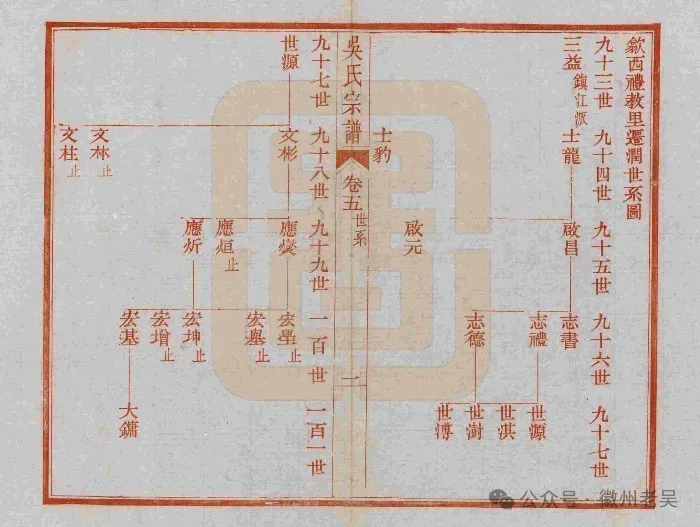 歙西禮教里遷潤世系圖
九十三世 九十四世 九十五世 九十六世 九十七世
三益 鎮江派 士龍 啟昌 志書
志禮 世源
世淇
志德 世澍
世溥
士豹 啟元
吳氏宗譜 卷五 世系 一
九十七世 九十八世 九十九世 一百世 一百一世
世源 文彬 應奠 宏壂 止
宏墨 止
應烜 止
應炘 宏坤 止
宏增 止
宏基 大鏞
文林 止
文柱 止
公众号·徽州老吴